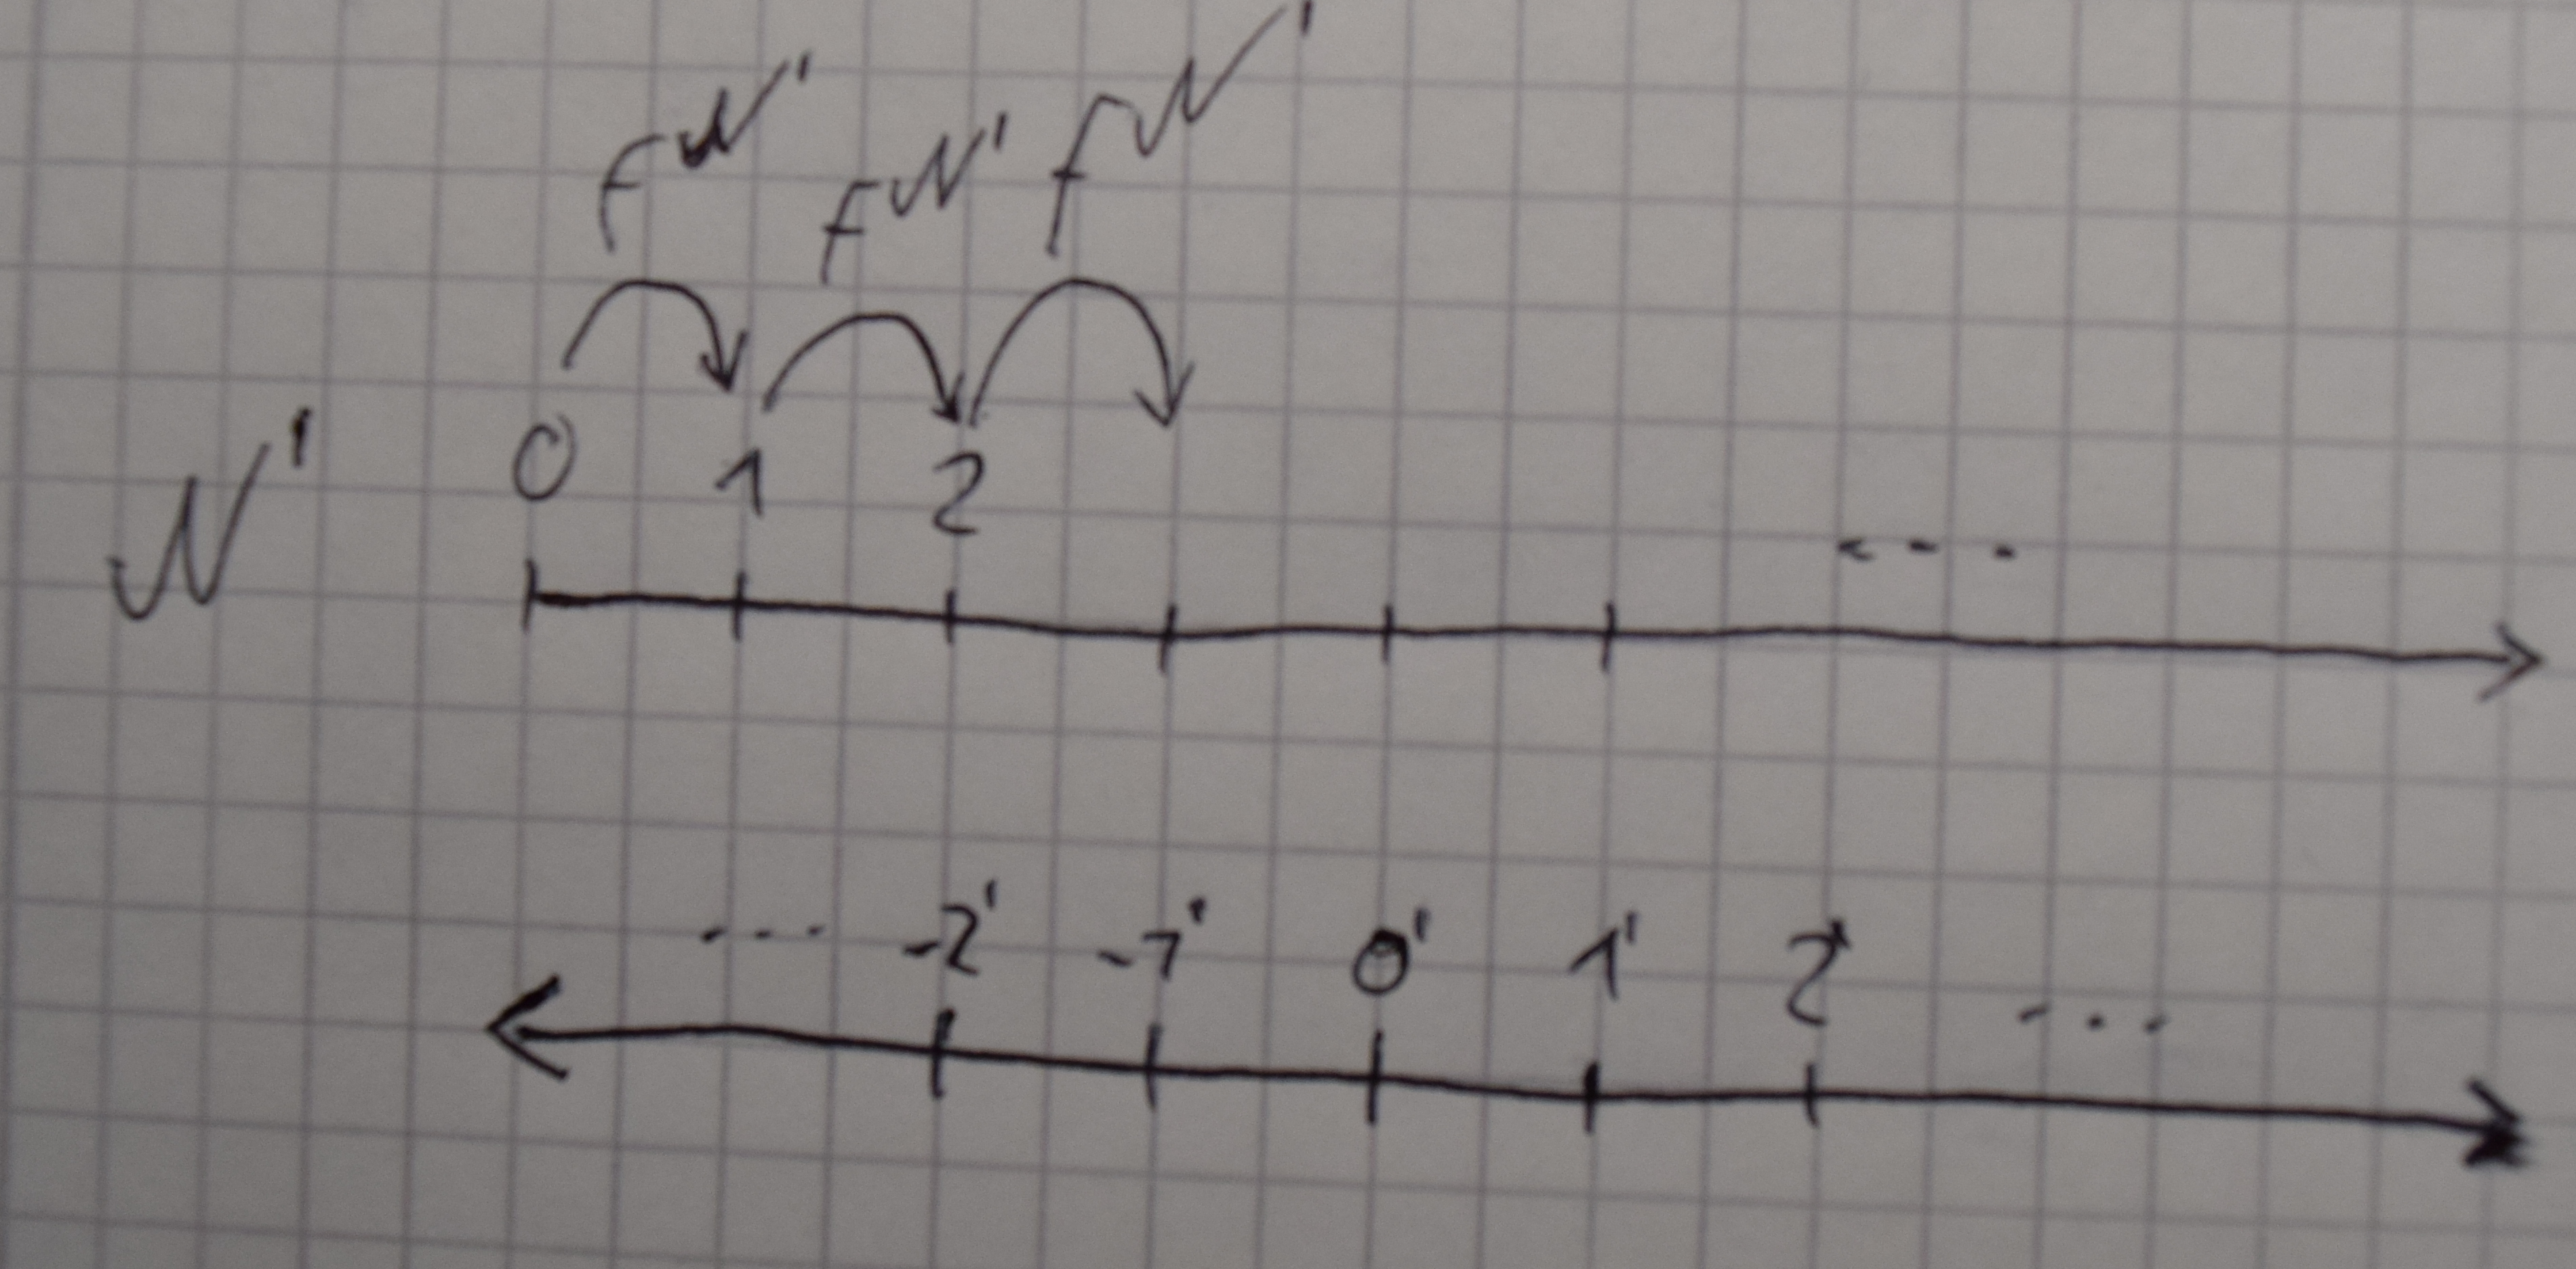 f𝒩' f𝒩' f𝒩'
𝒩' 0 1 2 ...
... -2' -1' 0' 1' 2' ...